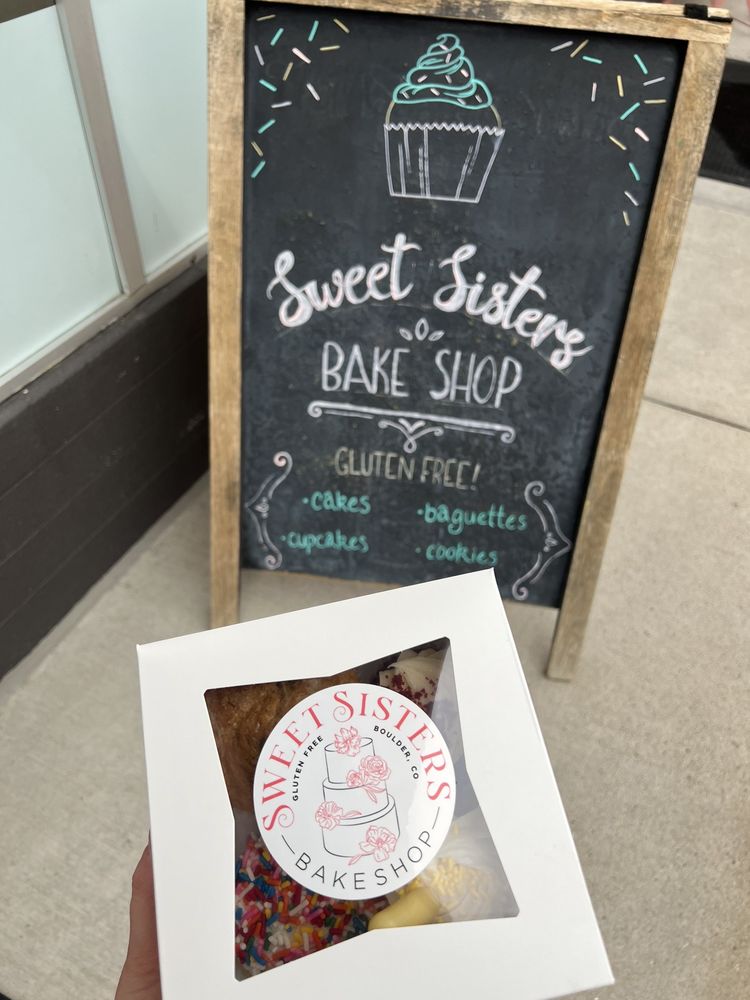 Sweet Sisters
BAKE SHOP
GLUTEN FREE!
• cakes
• baguettes
• cupcakes
• cookies
SWEET SISTERS
GLUTEN FREE
BOULDER, CO
— BAKESHOP —